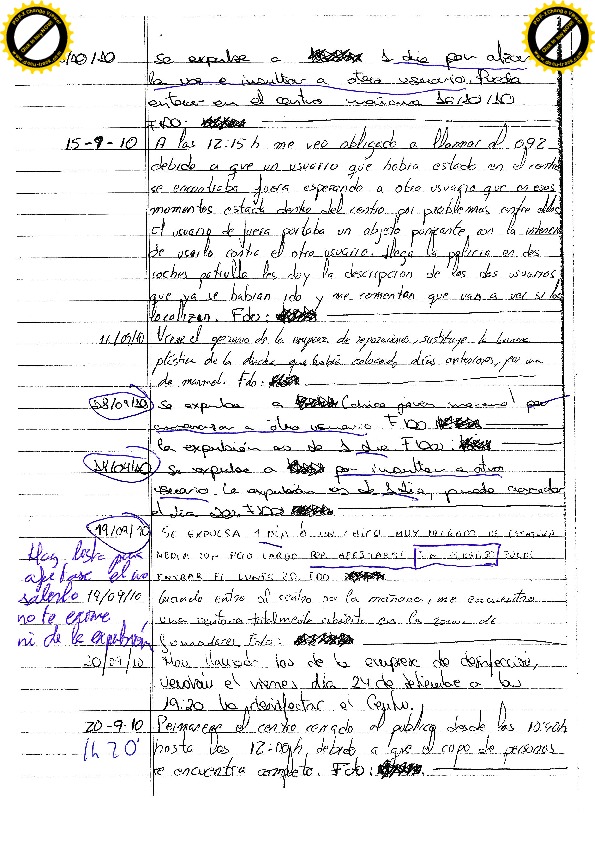 /10/10 se expulsa a 1 dia por alzar
la voz e insultar a otro usuario. Podra
entrar en el centro mañana 16/10/10
FDO:
15-9-10 A las 12:15h me veo obligado a llamar al 092
debido a que un usuario que habia estado en el centro
se encontraba fuera esperando a otro usuario que en esos
momentos estaba dentro del centro por problemas entre ellos
El usuario de fuera portaba un objeto punzante con la intención
de usarlo contra el otro usuario. Llega la policia en dos
coches patrulla les doy la descripcion de los dos usuarios
que ya se habian ido y me comentan que van a ver si los
localizan. Fdo:
/09/10 Viene el operario de la empresa de reparaciones, sustituye la
plástica de la ducha que había colocado días anteriores, por una
de marmol. Fdo:
18/09/10 se expulsa a (chico joven) por
amenazar a otro usuario. FDO
la expulsión es de 1 dia FDO:
se expulsa a por insultar a otro
usuario. la expulsión es de 1 dia, puede
el dia 20. FDO
19/09/10 SE EXPULSA 1 DIA A UN CHICO MUY DE ESTATURA
MEDIA CON PELO LARGO POR AFEITARSE PUEDE
ENTRAR EL LUNES 20. FDO
Hay lista para
afeitarse el no
saberlo
no te exime
ni de la expulsión
19/09/10 Cuando entro al centro por la mañana, me encuentro
una ventana totalmente abierta en la zona de
fumadores. Fdo:
20/09/10 Han llamado los de la empresa de desinfección,
vendrán el viernes día 24 de septiembre a las
19:30 a desinfectar el Centro.
20-9-10 Permanece el centro cerrado al público desde las 10:40h
1h 20' hasta las 12:00h, debido a que el cupo de personas
se encuentra completo. Fdo: